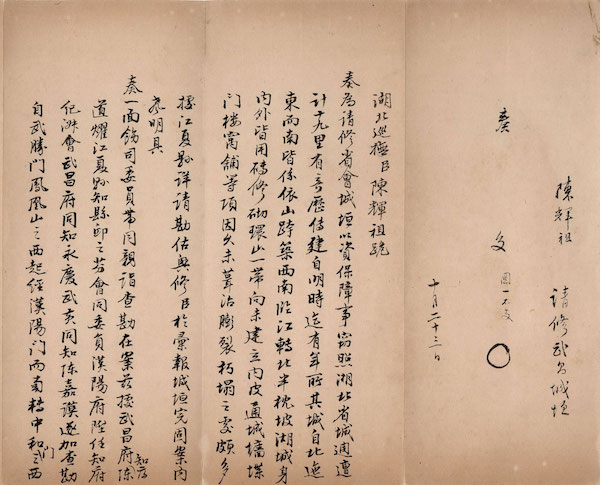 陳輝祖
請修武昌城垣
奏
交 圖一不交
十月二十三日
湖北巡撫臣陳輝祖跪
奏為請修省會城垣以資保障事竊照湖北省城週遭
計十九里有奇歷傳建自明時迄有年所其城自北迤
東而南皆係依山跨築西南臨江轉北半枕坡湖城身
內外皆用磚修砌環山一帶向未建立內皮通城墻垛
門樓窩鋪等項因久未葺治膨裂朽塌之處頗多
據江夏縣詳請勘估興修臣於彙報城垣完固案內
聲明具
奏一面飭司委員帶同親詣查勘在案茲據武昌府知府陳
道耀江夏縣知縣邱之芬會同委員漢陽府陞任知府
紀淑會武昌府同知永慶武黃同知陳嘉謨逐加查勘
自武勝門鳳凰山之西起經漢陽門而南轉中和門之西